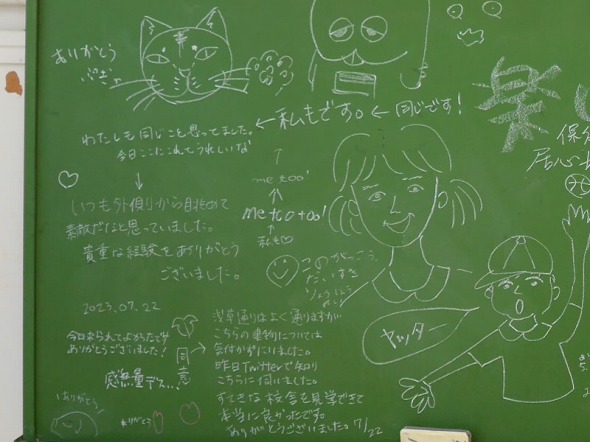 ありがとう
わたしも同じこと思ってました。
今日ここにこれてうれしいな
←私もです。
←同じです!
楽し
居心
いつも外側から眺めて
素敵だなと思っていました。
貴重な経験をありがとう
ございました。
me too!
me too!
私も♡
このがっこう、
だいすき
2023.07.22
今日来られてよかったです
ありがとうございました!
感無量デス…!
同意
浅草通りはよく通りますが
こちらの建物については
気付かずにいました。
昨日Twitterで知り
こちらに伺いました。
すてきな校舎を見学できて
本当に良かったです。
ありがとうございました。7/22
ヤッター
ありがとう
ありがとう